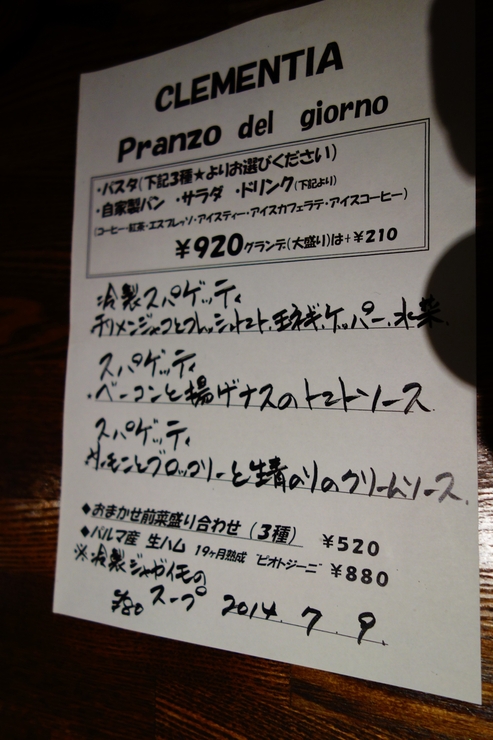 CLEMENTIA
Pranzo del giorno
・パスタ(下記3種★よりお選びください)
・自家製パン ・サラダ ・ドリンク(下記より)
(コーヒー・紅茶・エスプレッソ・アイスティー・アイスカフェラテ・アイスコーヒー)
￥920グランデ(大盛り)は+￥210
冷製スパゲッティ
チリメンジャコとフレッシュトマト、玉ネギ、ケッパー、水菜
スパゲッティ
・ベーコンと揚げナスのトマトソース
スパゲッティ
サーモンとブロッコリーと生青のりのクリームソース
◆おまかせ前菜盛り合わせ（3種） ￥520
◆パルマ産 生ハム 19ヶ月熟成 "ピオトジーニ" ￥880
※冷製ジャガイモの
スープ 2014. 7. 9.